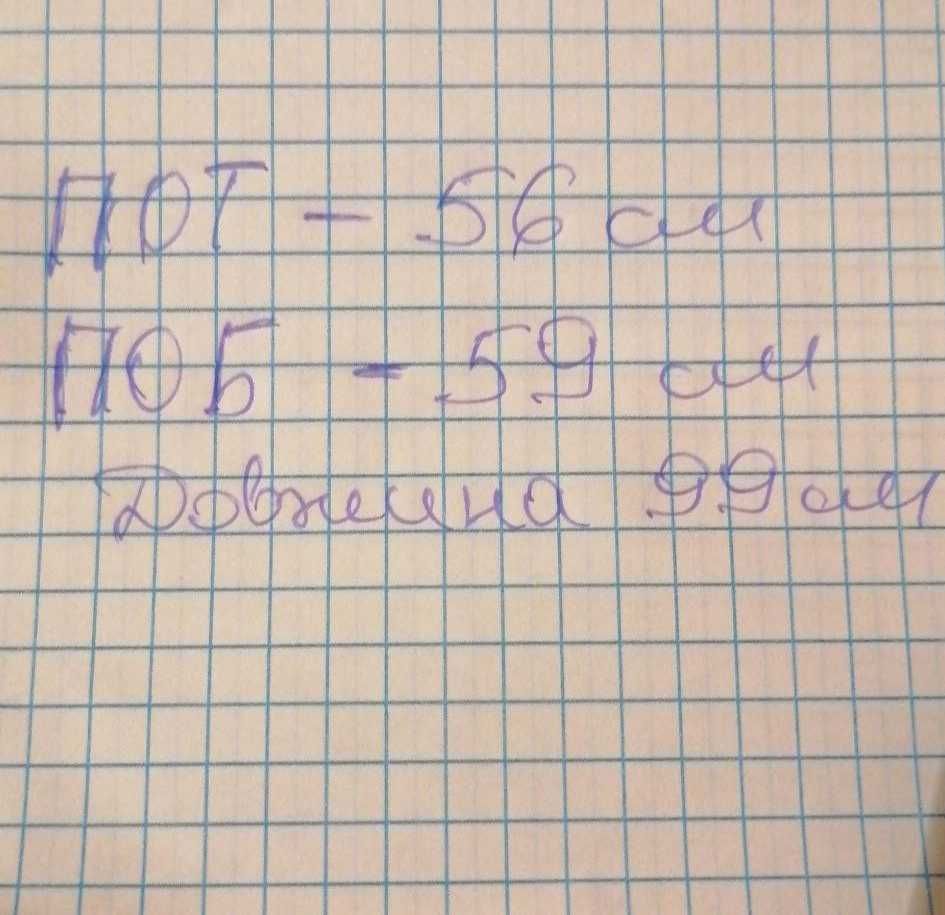 ПОТ - 56 см
ПОБ - 59 см
Довжина 99 см